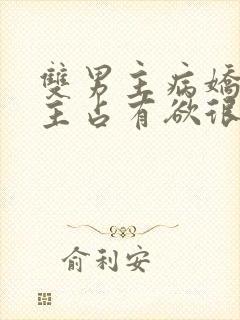 雙男主病嬌
主占有欲很
俞利安